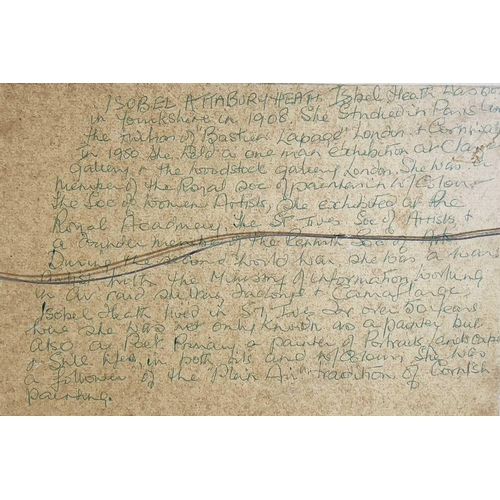 ISOBEL ATTABURY HEATH Isbel Heath was bor
in Yourkshire in 1908. She Studied in Paris Un
the tuition of "Bastien Lapage" London. + Cornwall
In 1950 she held a one man exhibition at
Gallery + the Woodstock Gallery London. She was
Member of the Royal Soc of painters in W/Colour
the Soc of Women Artists, She exhibited at the
Royal Academy the St. Ives Soc of Artists +
a founder member of the Penwith Soc of Arts
During the second World War she was a war
Artist with the Ministry of information working
in air raid shelters, factorys + Camaflarge
Isobel Heath lived in St. Ives for over 50 years
she was not only known as a painter but
also a Poet Primary a painter of Portraits, landscapes
+ Still life, in both oils and W/Colour, She was
a follower of the "Plein Air" tradition of Cornish
painting.